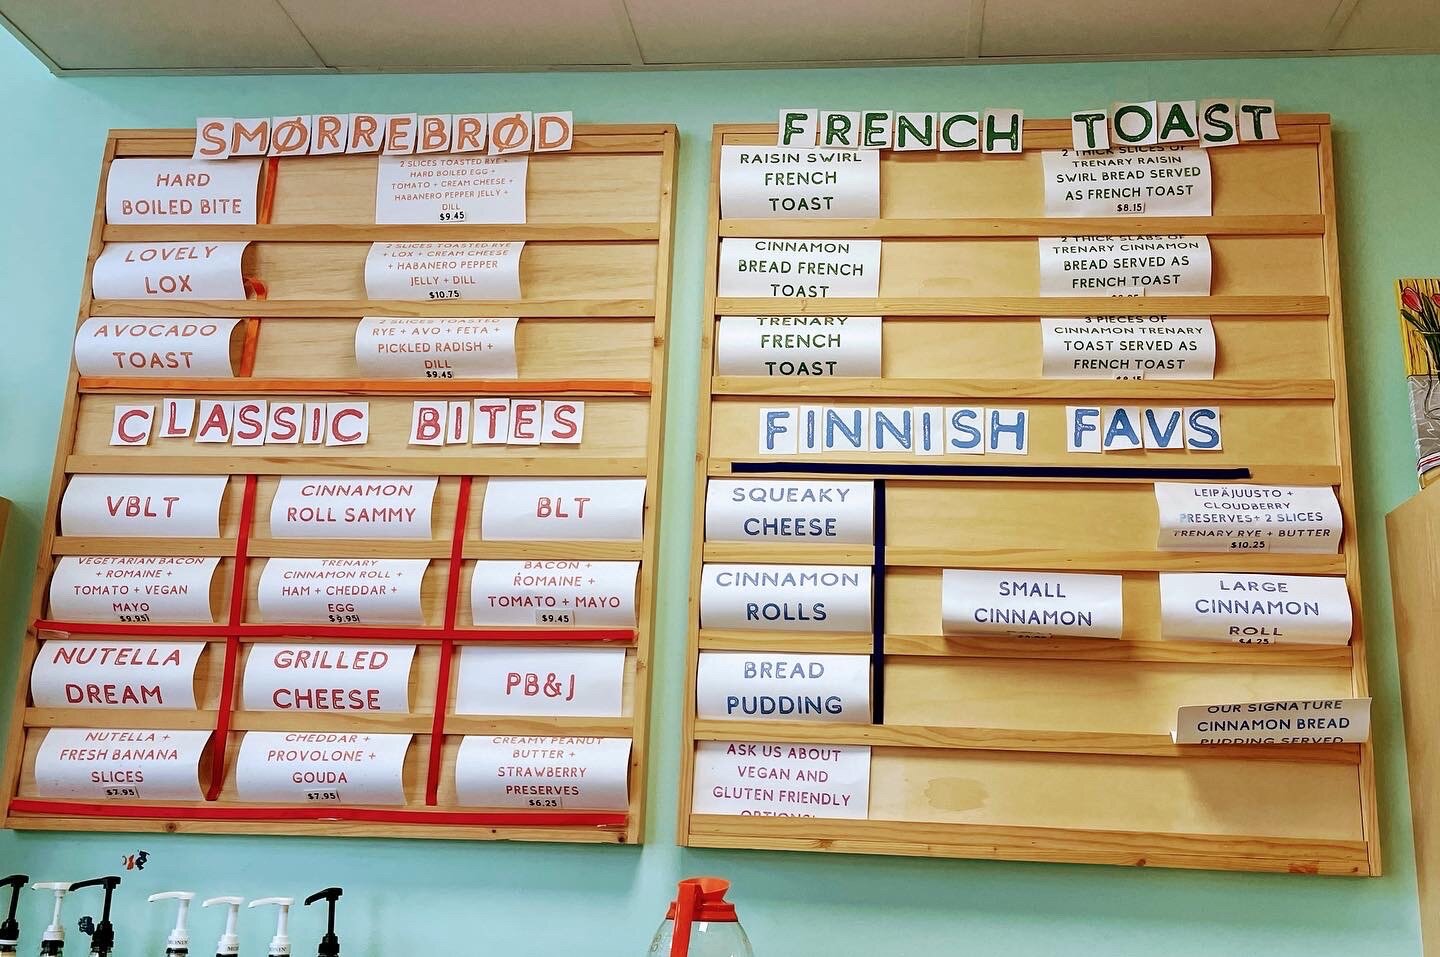 SMØRREBRØD
HARD
BOILED BITE
2 SLICES TOASTED RYE +
HARD BOILED EGG +
TOMATO + CREAM CHEESE +
HABANERO PEPPER JELLY +
DILL
$9.45
LOVELY
LOX
2 SLICES TOASTED RYE
+ LOX + CREAM CHEESE
+ HABANERO PEPPER
JELLY + DILL
$10.75
AVOCADO
TOAST
2 SLICES TOASTED
RYE + AVO + FETA +
PICKLED RADISH +
DILL
$9.45
CLASSIC BITES
VBLT
CINNAMON
ROLL SAMMY
BLT
VEGETARIAN BACON
+ ROMAINE +
TOMATO + VEGAN
MAYO
$9.95
TRENARY
CINNAMON ROLL +
HAM + CHEDDAR +
EGG
$9.95
BACON +
ROMAINE +
TOMATO + MAYO
$9.45
NUTELLA
DREAM
GRILLED
CHEESE
PB&J
NUTELLA +
FRESH BANANA
SLICES
$7.95
CHEDDAR +
PROVOLONE +
GOUDA
$7.95
CREAMY PEANUT
BUTTER +
STRAWBERRY
PRESERVES
$6.25
FRENCH TOAST
RAISIN SWIRL
FRENCH
TOAST
2 THICK SLICES OF
TRENARY RAISIN
SWIRL BREAD SERVED
AS FRENCH TOAST
$8.15
CINNAMON
BREAD FRENCH
TOAST
2 THICK SLABS OF
TRENARY CINNAMON
BREAD SERVED AS
FRENCH TOAST
TRENARY
FRENCH
TOAST
3 PIECES OF
CINNAMON TRENARY
TOAST SERVED AS
FRENCH TOAST
$8.15
FINNISH FAVS
SQUEAKY
CHEESE
LEIPÄJUUSTO +
CLOUDBERRY
PRESERVES+ 2 SLICES
TRENARY RYE + BUTTER
$10.25
CINNAMON
ROLLS
SMALL
CINNAMON
LARGE
CINNAMON
ROLL
$4.25
BREAD
PUDDING
OUR SIGNATURE
CINNAMON BREAD
PUDDING SERVED
ASK US ABOUT
VEGAN AND
GLUTEN FRIENDLY
OPTIONS!
MONIN